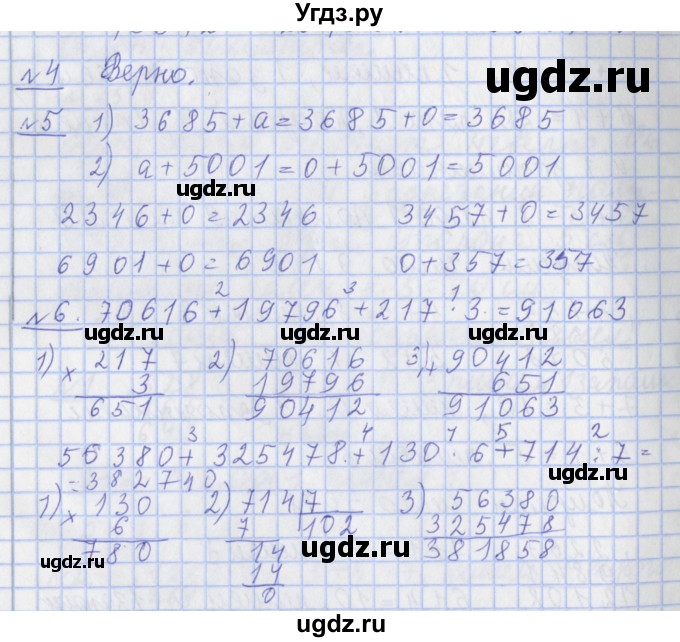 Угдз.ру
№4 Верно.
ugdz.ru
№5 1) 3685 + a = 3685 + 0 = 3685
2) a + 5001 = 0 + 5001 = 5001
ugdz.ru
2346 + 0 = 2346 3457 + 0 = 3457
6901 + 0 = 6901 0 + 357 = 357
2 3 1
№6. 70616 + 19796 + 217 · 3 = 91063
ugdz.ru ugdz.ru
1) × 217 2) 70616 3) + 90412
3 19796 651
651 90412 91063
3 4 1 5 2
56380 + 325478 + 130 · 6 + 714 : 7 =
= 382740
ugdz.ru
1) × 130 2) 714 7 3) 56380
6 7 102 325478
780 14 381858
ugdz.ru ugdz.ru
14
0